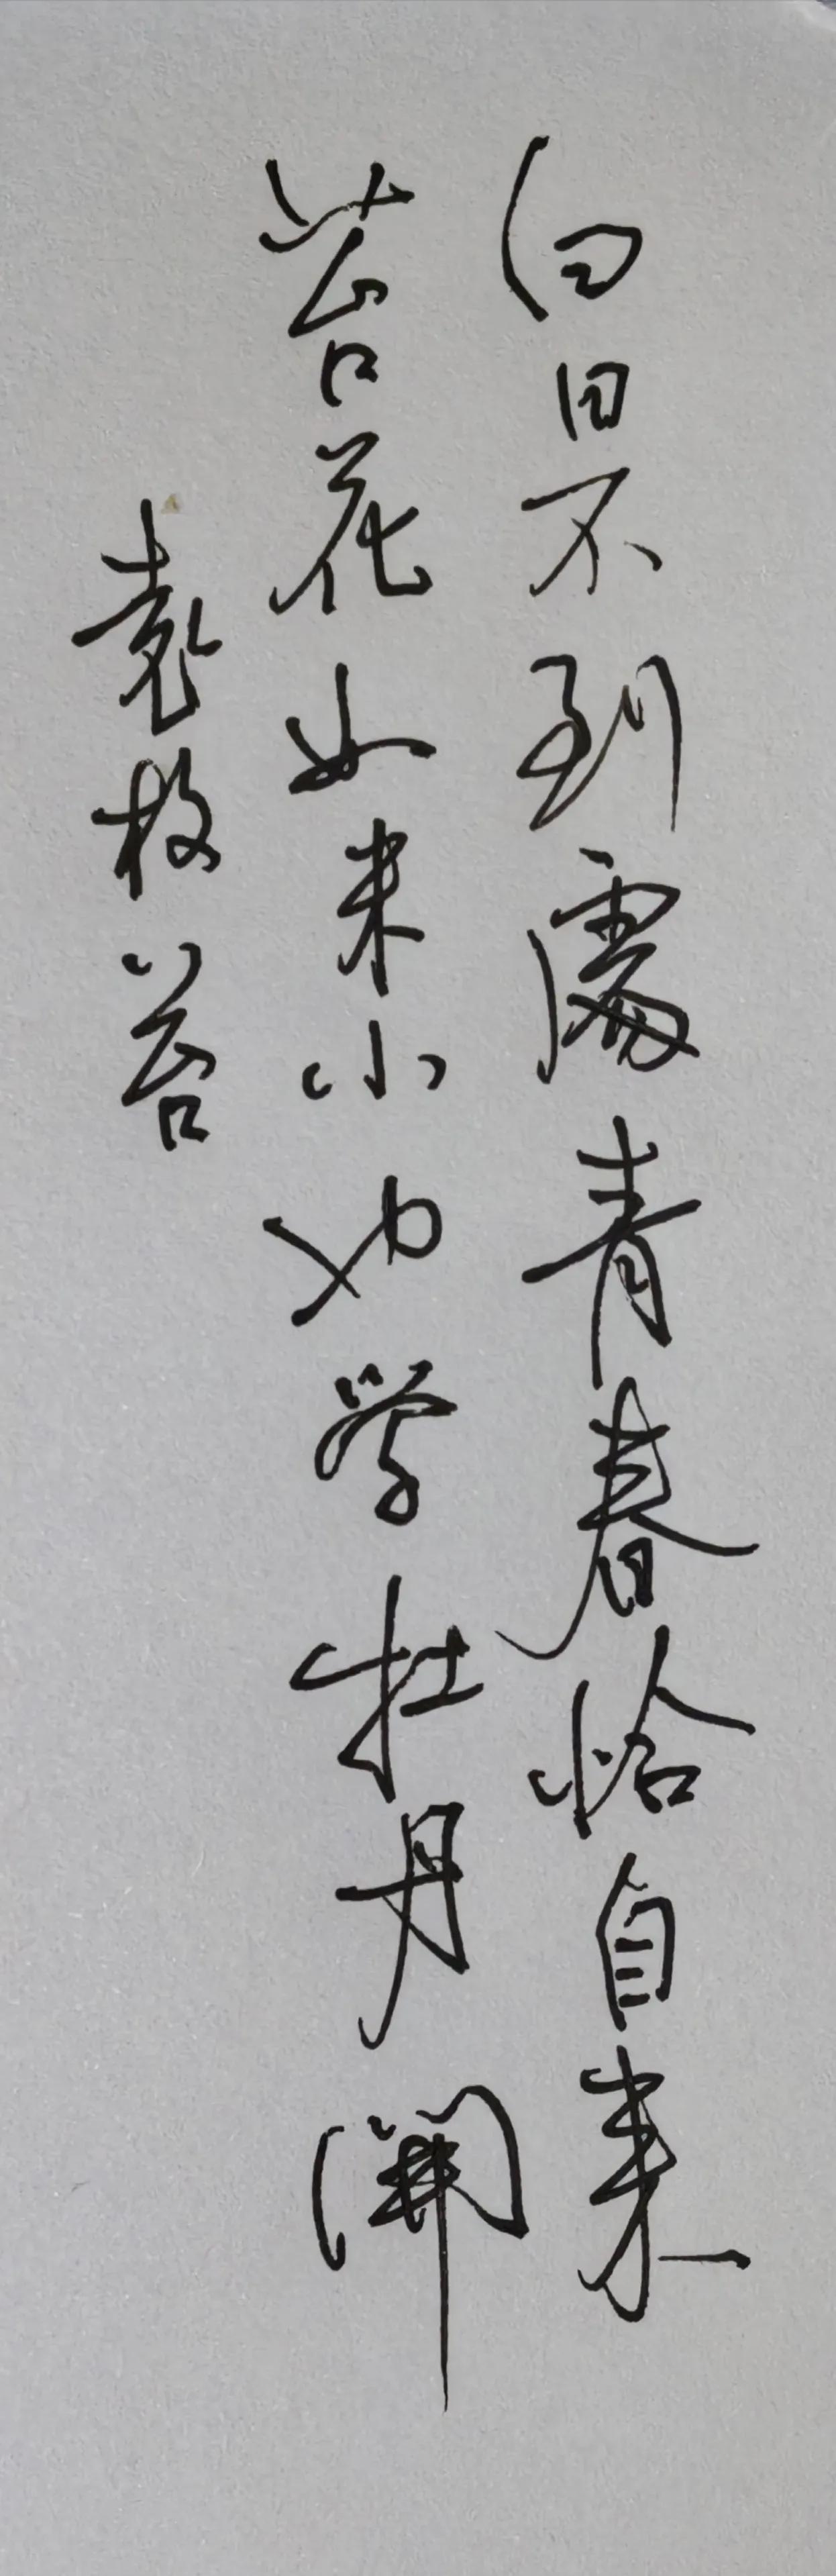 白日不到處青春恰自来
苔花如米小也学牡丹開
袁枚苔